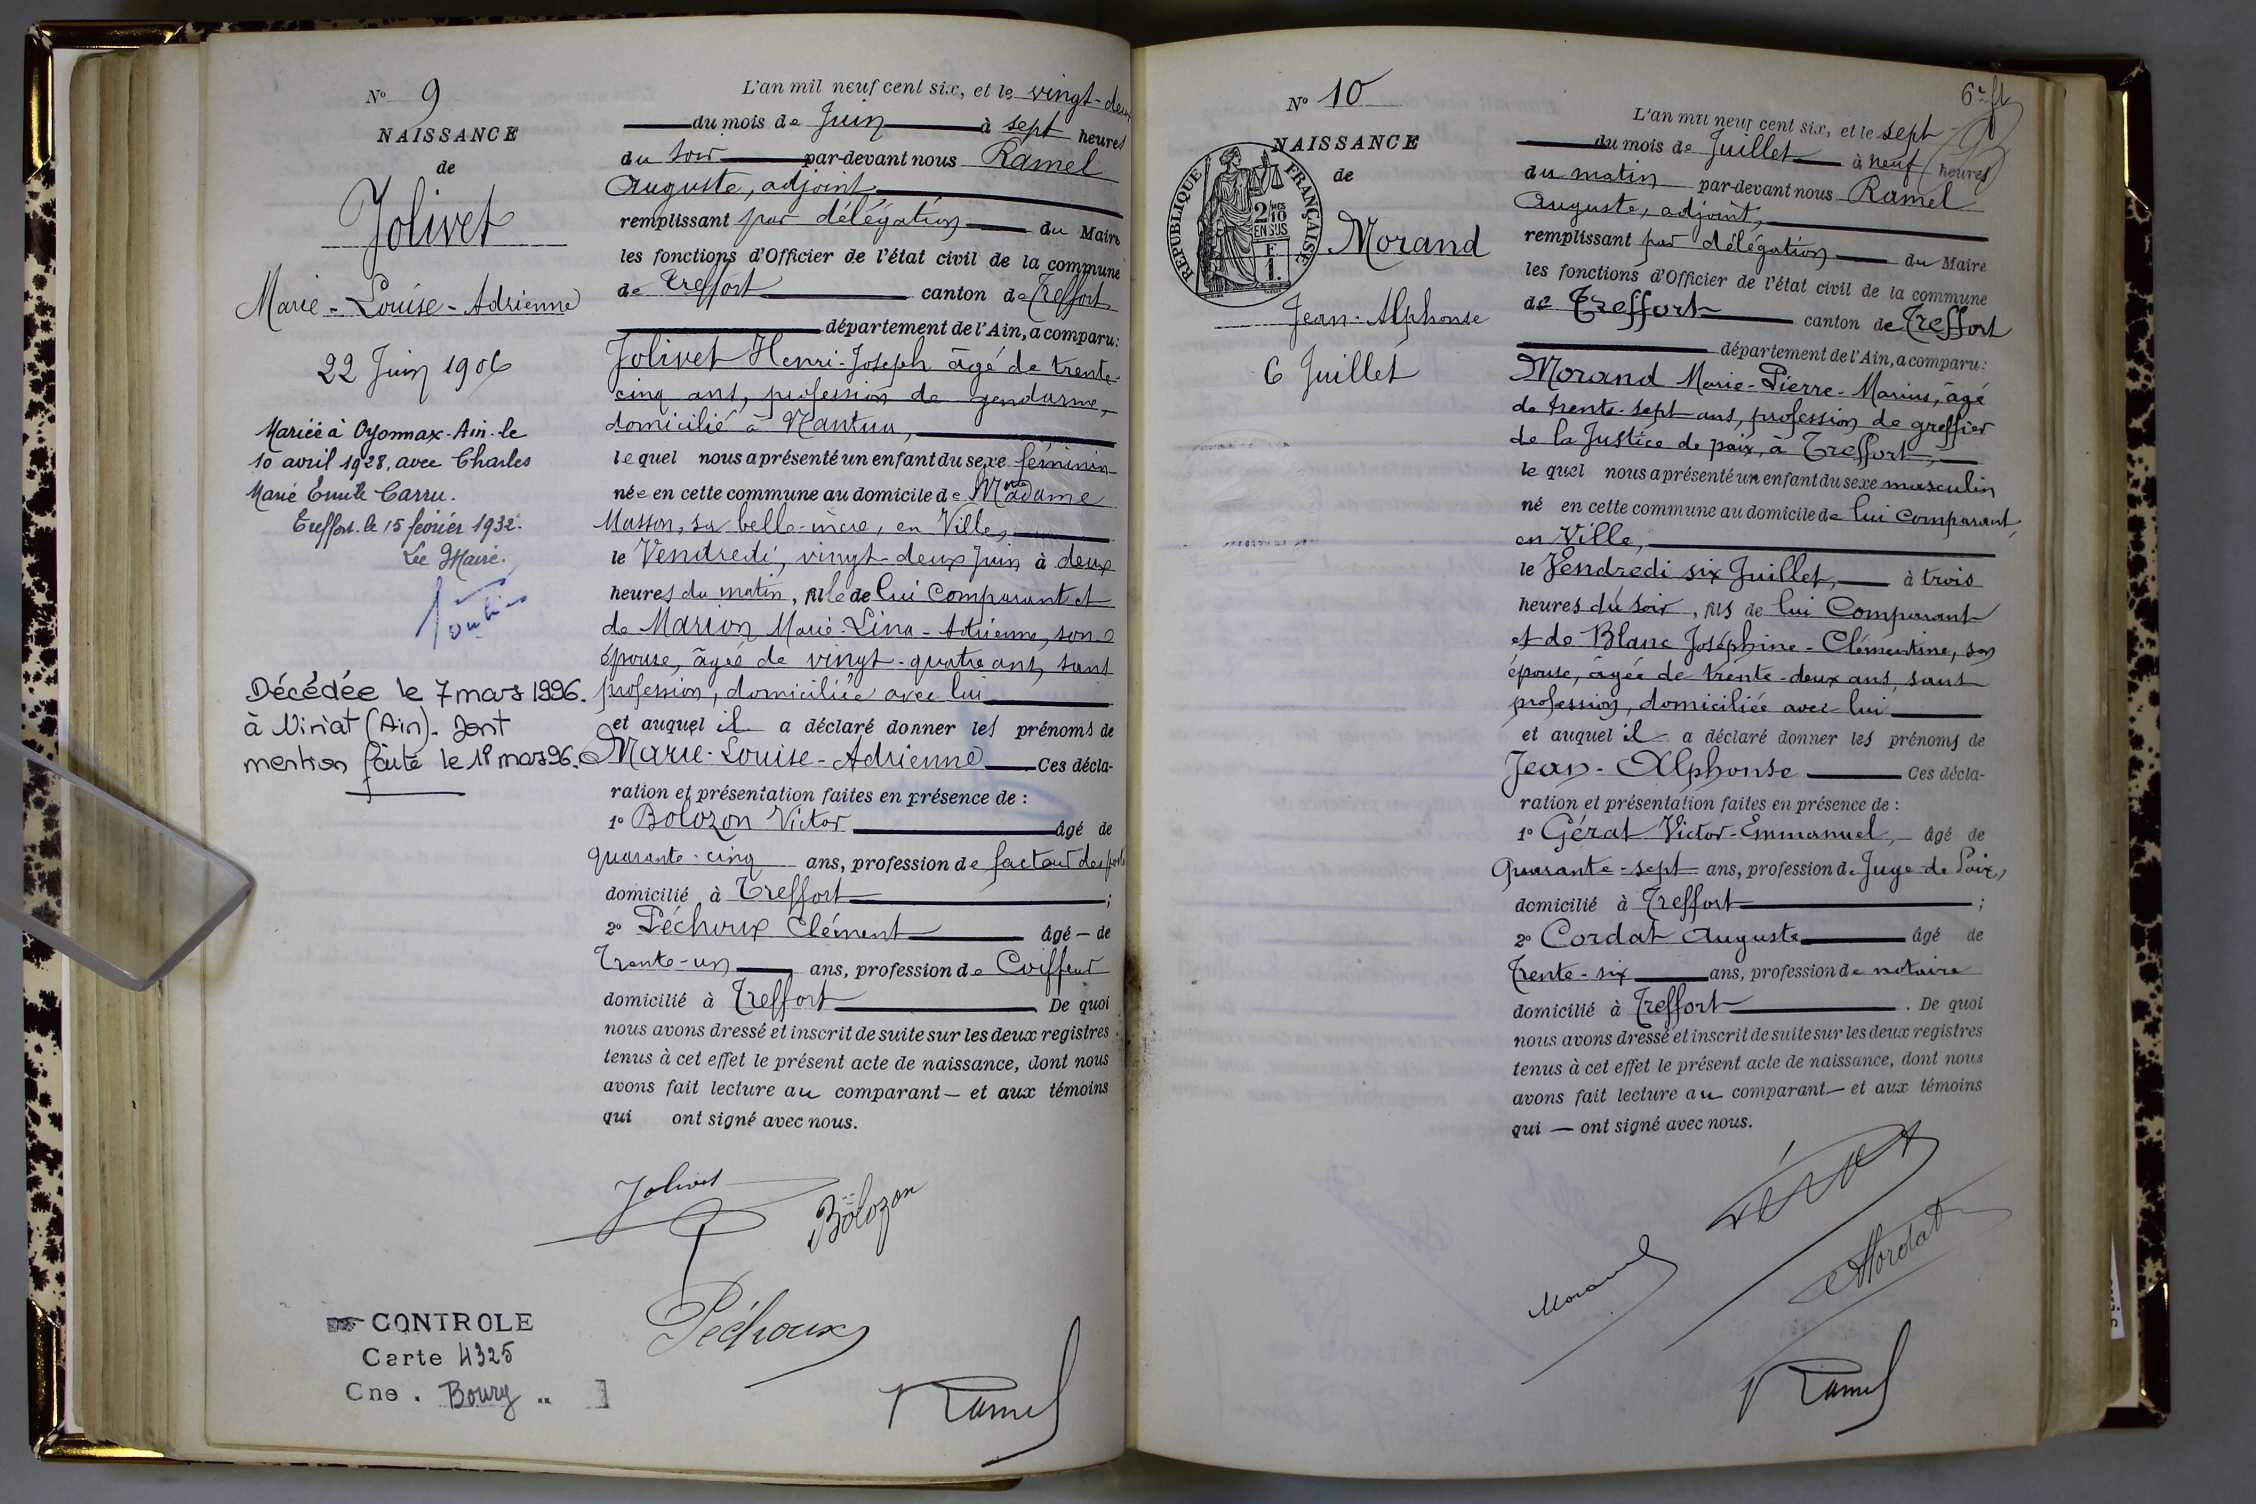 N° 9
NAISSANCE
de
Jolivet
Marie-Louise-Adrienne
22 Juin 1906
Mariée à Oyonnax-Ain-le
10 avril 1928, avec Charles
Marie Emile Carru.
Treffort. le 15 février 1932.
Le Maire.
Décédée le 7 mars 1996.
à Viriat (Ain). Dont
mention faite le 18 mars 96.
CONTROLE
Carte 4325
Cne. Bourg
L'an mil neuf cent six, et le vingt-deux
du mois de Juin à sept heures
du soir par-devant nous Ramel
Auguste, adjoint
remplissant par délégation du Maire
les fonctions d'Officier de l'état civil de la commune
de Treffort canton de Treffort
département de l'Ain, a comparu:
Jolivet Henri-Joseph âgé de trente-
cinq ans, profession de gendarme,
domicilié à Nantua,
lequel nous a présenté un enfant du sexe féminin
née en cette commune au domicile de Madame
Masson, sa belle-mère, en Ville,
le Vendredi, vingt-deux Juin à deux
heures du matin, fille de lui Comparant et
de Marion Marie-Lina-Adrienne, son
épouse, âgée de vingt-quatre ans, sans
profession, domiciliée avec lui
et auquel il a déclaré donner les prénoms de
Marie-Louise-Adrienne Ces décla-
ration et présentation faites en présence de :
1° Bolozon Victor âgé de
quarante-cinq ans, profession de facteur des postes
domicilié à Treffort ;
2° Péchoux Clément âgé de
Trente-un ans, profession de Coiffeur
domicilié à Treffort De quoi
nous avons dressé et inscrit de suite sur les deux registres
tenus à cet effet le présent acte de naissance, dont nous
avons fait lecture au comparant et aux témoins
qui ont signé avec nous.
Jolivet
Bolozon
Péchoux
Ramel
N° 10
NAISSANCE
de
RÉPUBLIQUE FRANÇAISE
2/10 MES
EN SUS
F
1.
Morand
Jean-Alphonse
6 Juillet
L'an mil neuf cent six, et le sept
du mois de Juillet à neuf heures
du matin par-devant nous Ramel
Auguste, adjoint,
remplissant par délégation du Maire
les fonctions d'Officier de l'état civil de la commune
de Treffort canton de Treffort
département de l'Ain, a comparu:
Morand Marie-Pierre-Marius, âgé
de trente-sept ans, profession de greffier
de la Justice de paix, à Treffort,
lequel nous a présenté un enfant du sexe masculin
né en cette commune au domicile de lui comparant,
en Ville,
le Vendredi six Juillet, à trois
heures du soir, fils de lui Comparant
et de Blanc Joséphine-Clémentine, son
épouse, âgée de trente-deux ans, sans
profession, domiciliée avec lui
et auquel il a déclaré donner les prénoms de
Jean-Alphonse Ces décla-
ration et présentation faites en présence de :
1° Gérat Victor-Emmanuel, âgé de
Quarante-sept ans, profession de Juge de Paix,
domicilié à Treffort ;
2° Cordat Auguste âgé de
Trente-six ans, profession de notaire
domicilié à Treffort . De quoi
nous avons dressé et inscrit de suite sur les deux registres
tenus à cet effet le présent acte de naissance, dont nous
avons fait lecture au comparant et aux témoins
qui ont signé avec nous.
Morand
Ramel